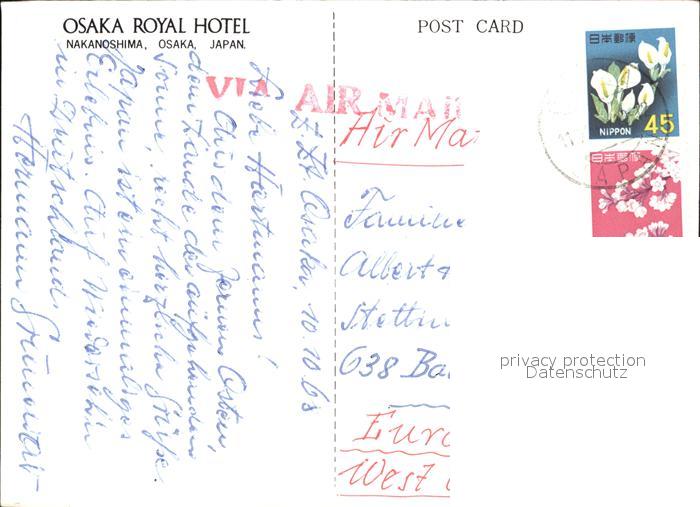 OSAKA ROYAL HOTEL
NAKANOSHIMA, OSAKA, JAPAN.
POST CARD
VIA AIR MAIL
日本郵便
NIPPON 45
日本郵便
z. Zt. Osaka, 10.10.68
Liebe Hartmanns!
Aus dem fernen Osten,
dem Lande der aufgehenden
Sonne, recht herzliche Grüße.
Japan ist ein einmaliges
Erlebnis. Auf Wiedersehen
in Deutschland.
Hermann
Air Ma
Familie
Albert
Stettin
638 Ba
Euro
West
privacy protection
Datenschutz